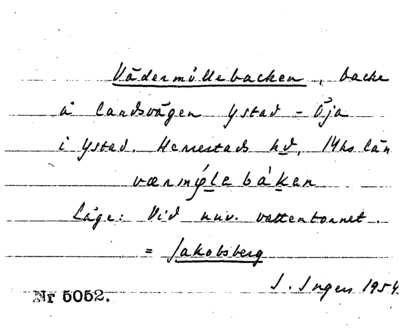 Vädermöllebacken, backe
å landsvägen Ystad - Öja
i Ystad. Herrestads hd, Mhs län
værmýle báken
Läge: Vid nuv. vattentornet.
= Jakobsberg
I. Ingers 1954.
Nr 5052.